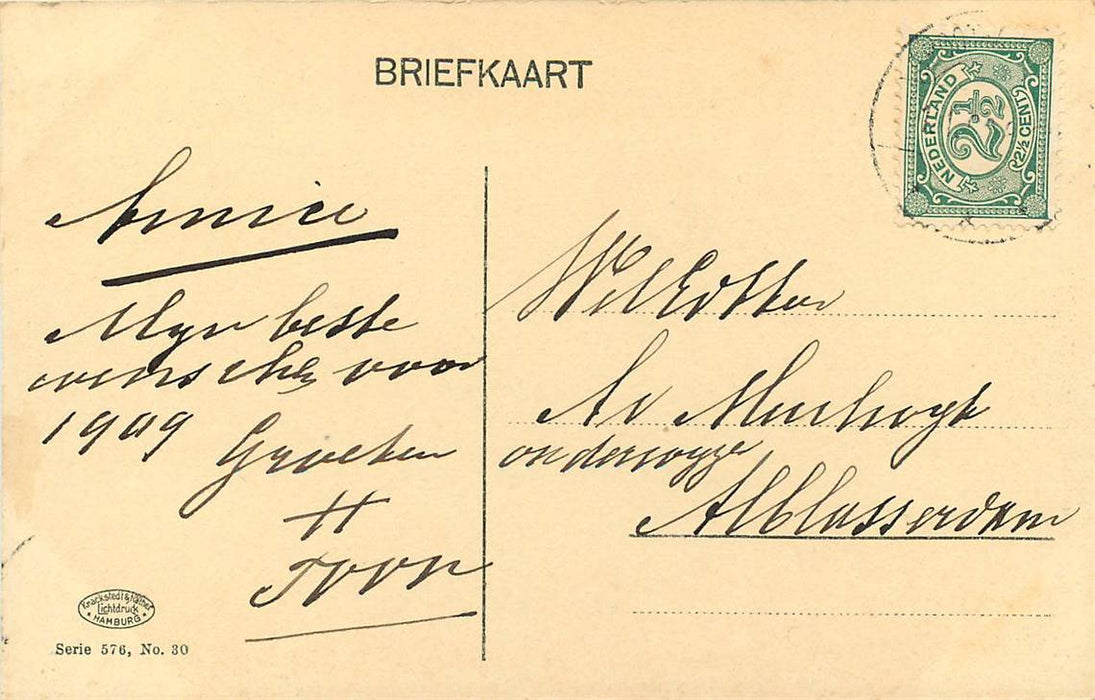 BRIEFKAART
NEDERLAND
2½
2½ CENT
Annice
Myn beste
wenschen voor
1909
Groeten
Toon
Av
Alblasserdam
Knackstedt & Näther
Lichtdruck
HAMBURG
Serie 576, No. 30